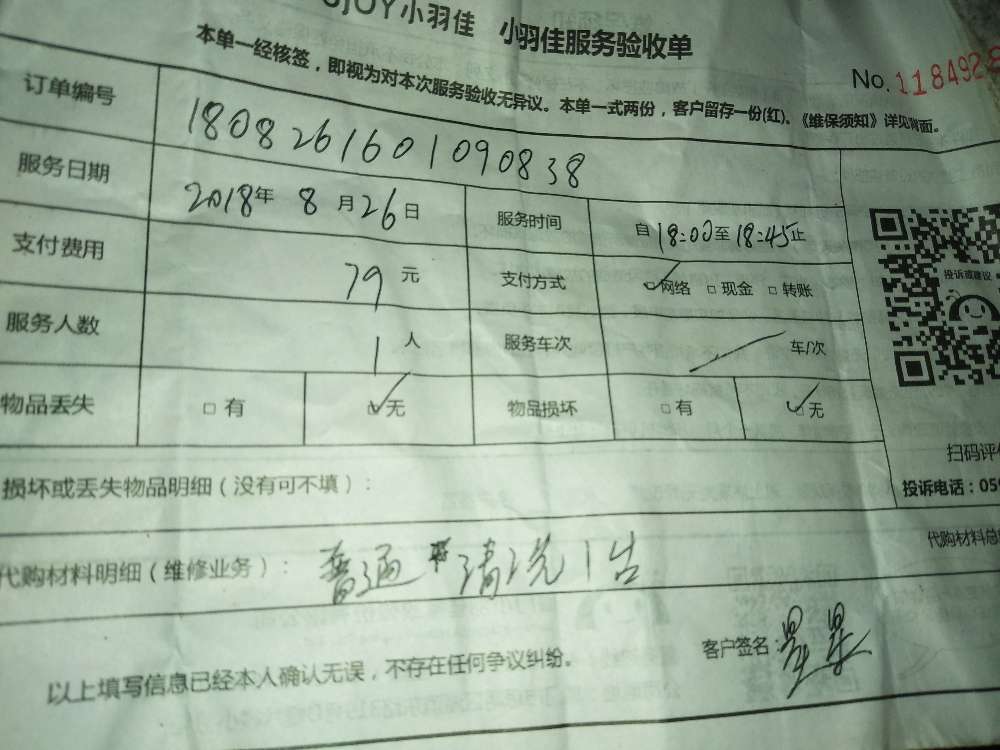 小羽佳 小羽佳服务验收单
No.118492
本单一经核签，即视为对本次服务验收无异议。本单一式两份，客户留存一份(红)。《维保须知》详见背面。
订单编号 1808261601090838
服务日期 2018年 8月26日 服务时间 自18:00至18:45止
支付费用 79元 支付方式 网络 □现金 □转账
服务人数 1人 服务车次 车/次
物品丢失 □有 无 物品损坏 □有 无
投诉或建议
扫码评
投诉电话：059
损坏或丢失物品明细（没有可不填）：
代购材料总
代购材料明细（维修业务）： 普通 清洗1台
客户签名：星星
以上填写信息已经本人确认无误，不存在任何争议纠纷。